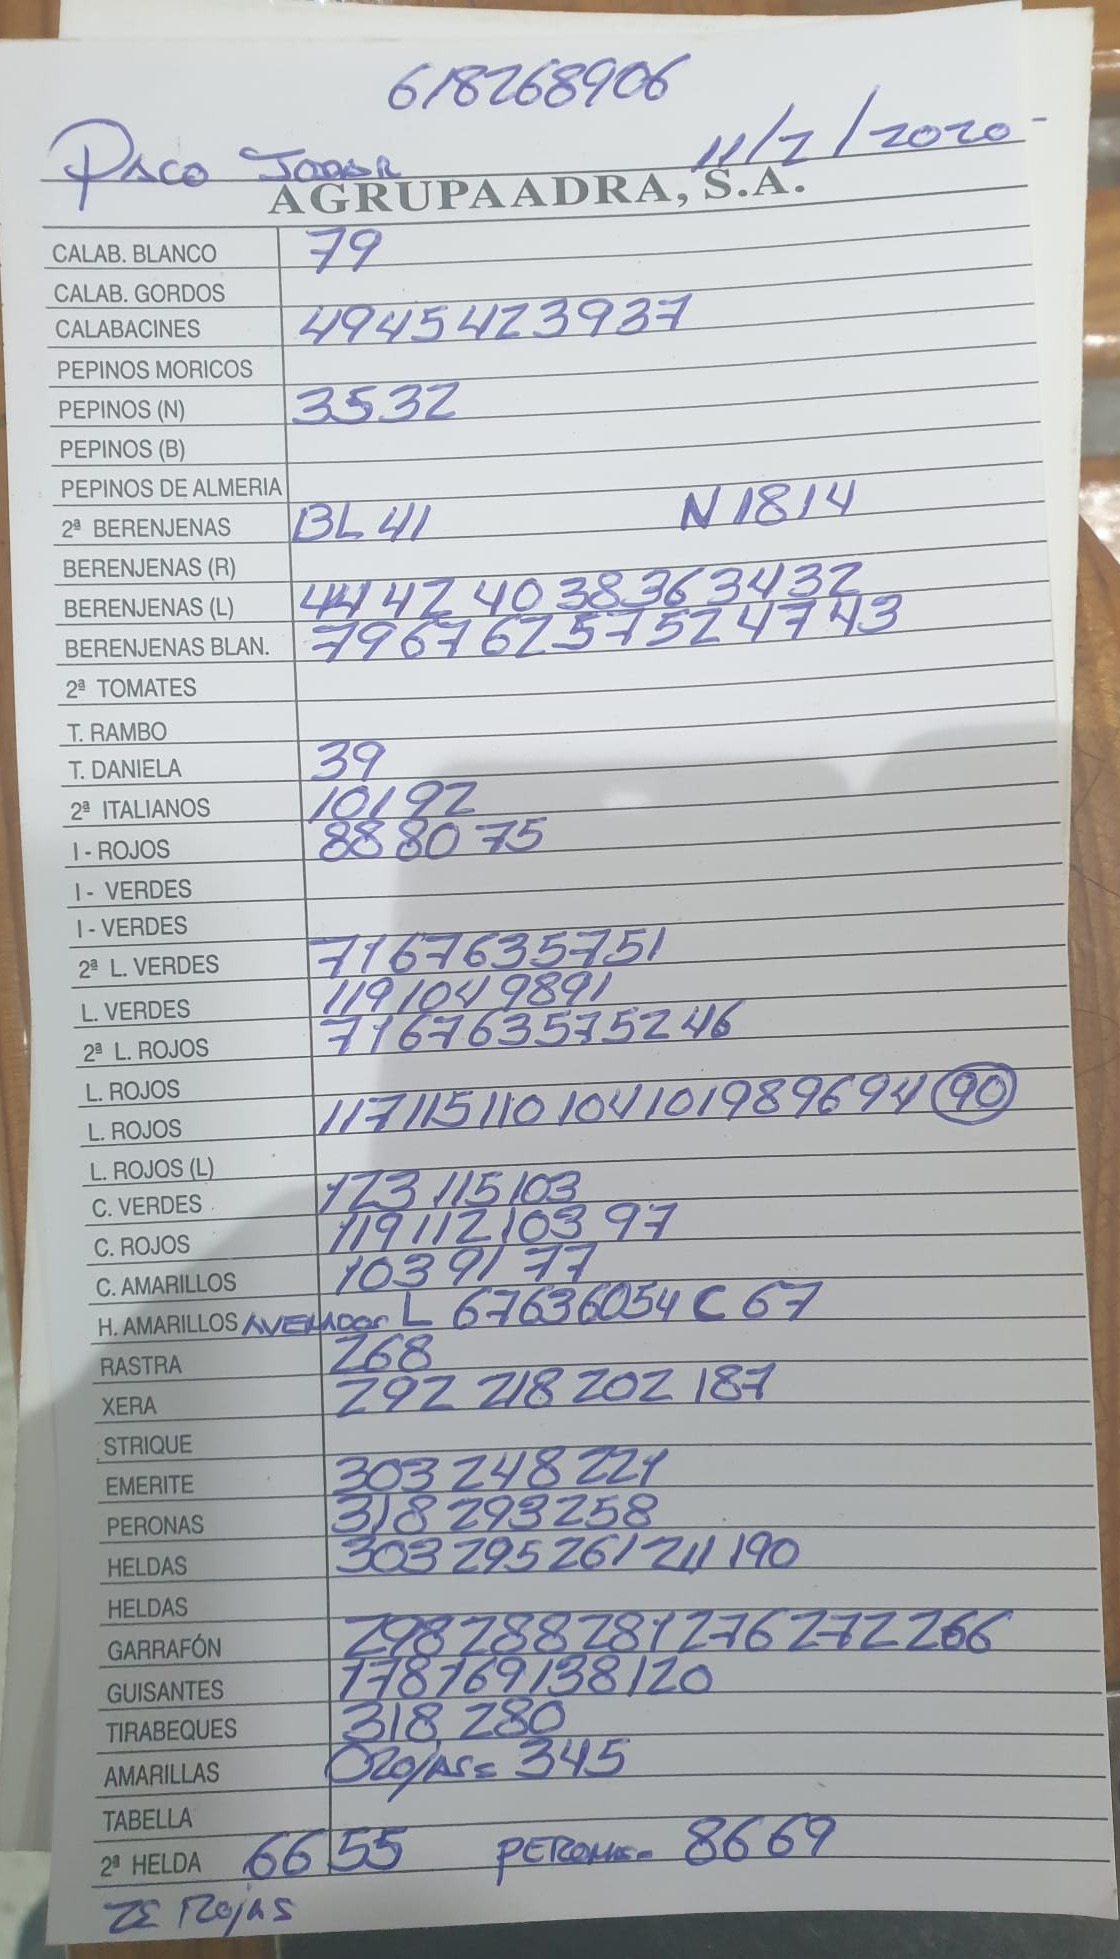 618268906
Paco Jodar 11/2/2020-
AGRUPAADRA, S.A.
CALAB. BLANCO 79
CALAB. GORDOS
CALABACINES 49 45 42 39 37
PEPINOS MORICOS
PEPINOS (N) 35 32
PEPINOS (B)
PEPINOS DE ALMERIA
2ª BERENJENAS BL 41 N 18 14
BERENJENAS (R)
BERENJENAS (L) 44 42 40 38 36 34 32
BERENJENAS BLAN. 79 67 62 57 52 47 43
2ª TOMATES
T. RAMBO
T. DANIELA 39
2ª ITALIANOS 101 92
I - ROJOS 88 80 75
I - VERDES
I - VERDES
2ª L. VERDES 71 67 63 57 51
L. VERDES 119 104 98 91
2ª L. ROJOS 71 67 63 57 52 46
L. ROJOS
L. ROJOS 117 115 110 104 101 98 96 94 90
L. ROJOS (L)
C. VERDES 123 115 103
C. ROJOS 119 112 103 97
C. AMARILLOS 103 91 77
H. AMARILLOS L 67 63 60 54 C 67
RASTRA 268
XERA 292 218 202 187
STRIQUE
EMERITE 303 248 221
PERONAS 318 293 258
HELDAS 303 295 261 211 190
HELDAS
GARRAFÓN 298 288 281 276 272 266
GUISANTES 178 169 138 120
TIRABEQUES 318 280
AMARILLAS 345
TABELLA
2ª HELDA 66 55 PERONA- 86 69
Rojas